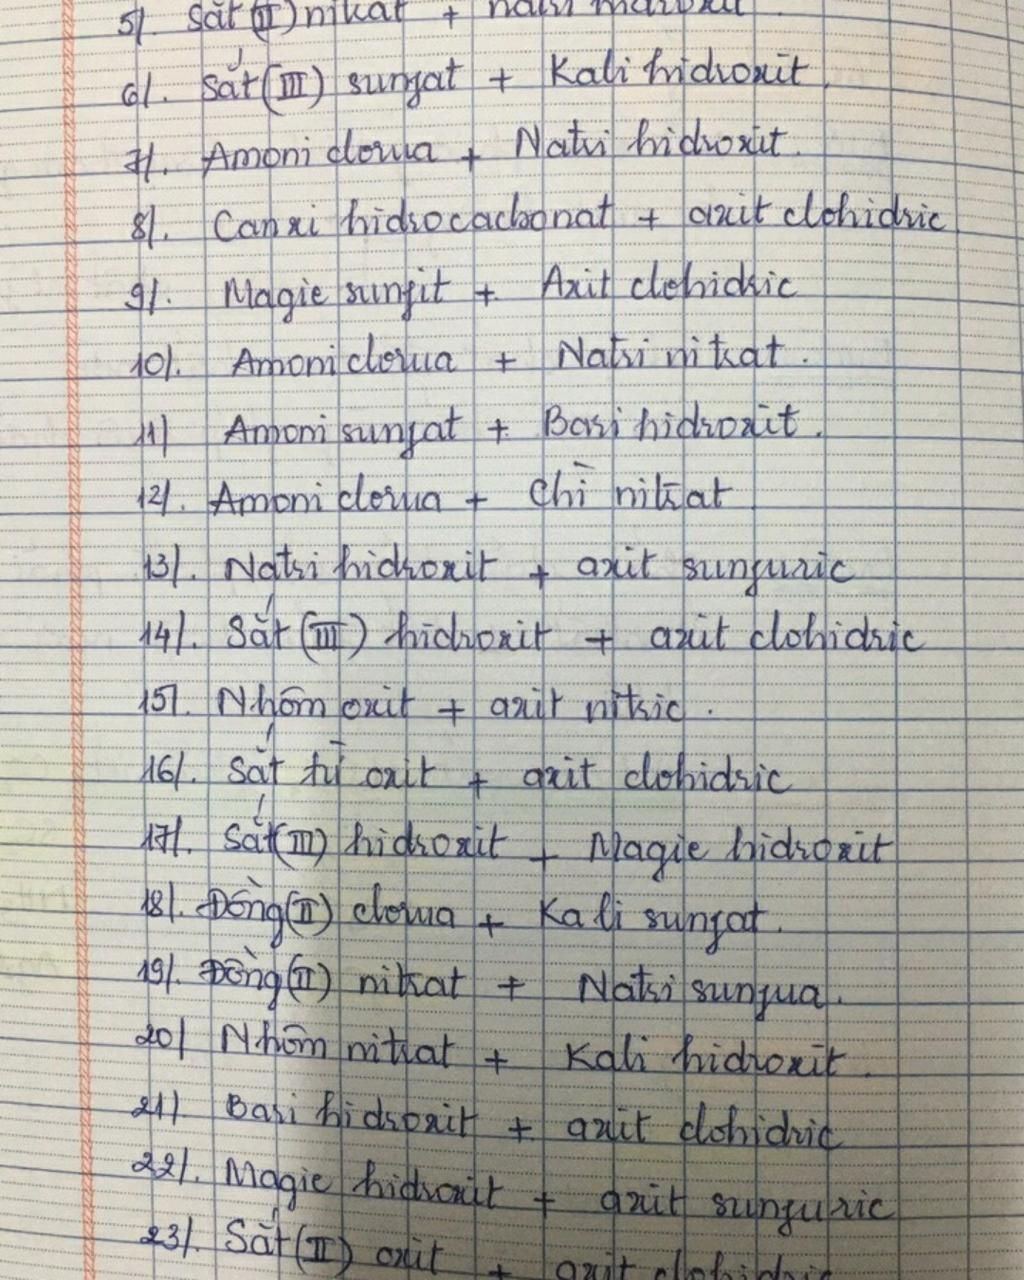 5/. Sắt(II) nitrat + natri hidroxit
6/. Sắt(III) sunfat + Kali hidroxit.
7/. Amoni clorua + Natri hidroxit.
8/. Canxi hidrocacbonat + axit clohidric
9/. Magie sunfit + Axit clohidric
10/. Amoni clorua + Natri nitrat.
11/ Amoni sunfat + Bari hidroxit.
12/. Amoni clorua + Chì nitrat
13/. Natri hidroxit + axit sunfuric
14/. Sắt (III) hidroxit + axit clohidric
15/. Nhôm oxit + axit nitric.
16/. Sắt từ oxit + axit clohidric
17/. Sắt(III) hidroxit + Magie hidroxit
18/. Đồng(II) clorua + Kali sunfat.
19/. Đồng(II) nitrat + Natri sunfua.
20/ Nhôm nitrat + Kali hidroxit.
21/. Bari hidroxit + axit clohidric
22/. Magie hidroxit + axit sunfuric
23/. Sắt(II) oxit + axit clohidric